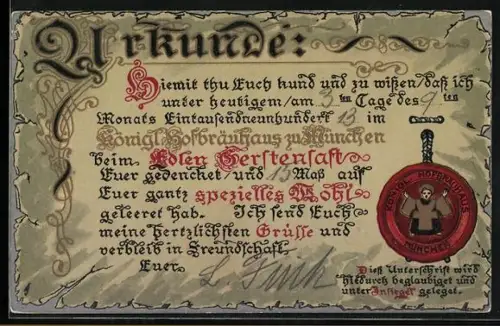 Urkunde:
Hiemit thu Euch kund und zu wißen/daß ich
unter heutigem/am 5ten Tage des 9ten
Monats Eintausendneunhundert 13 im
Königl. Hofbräuhaus zu München
beim Edlen Gerstensaft
Euer gedencket und 15 Maß auf
Euer gantz spezielles Wohl
geleeret hab. Ich send Euch
meine hertzlichsten Grüße und
verbleib in Freundschaft
Euer L. Fink
KÖNIGL. HOFBRÄUHAUS
MÜNCHEN
Dieß Unterschrift wird
hiedurch beglaubiget und
unter Insiegel geleget.